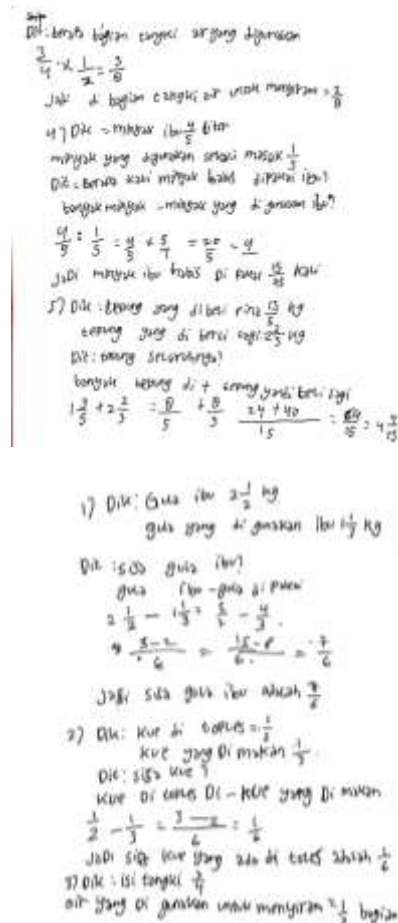 Dit : berapa bagian tangki air yang digunakan
3/4 x 1/2 = 3/8
Jadi di bagian tangki air untuk menyiram = 3/8
4) Dik = minyak ibu 4/5 liter
minyak yang digunakan sekali masak 1/5
Dit : Berapa kali minyak habis dipakai ibu?
banyak minyak - minyak yang di gunakan ibu?
4/5 : 1/5 = 4/5 x 5/1 = 20/5 = 4
Jadi minyak ibu habis Di kali
5) Dik : tepung yang dibeli rina kg
tepung yang di beli kg
Dit : seluruhnya?
banyak tepung di + tepung yang beli
1 3/5 + 2 2/3 = 8/5 + 8/3 24 + 40 / 15 = 64/15 = 4 4/15
1) Dik : Gula ibu 2 1/2 kg
gula yang di gunakan ibu 1 1/3 kg
Dit : sisa gula ibu?
gula ibu - gula di pakai
2 1/2 - 1 1/3 = 5/2 - 4/3
3-2/6 = 15-8/6 = 7/6
Jadi sisa gula ibu adalah 7/6
2) Dik : kue di toples = 1/2
kue yang Di makan 1/3
Dit : sisa kue?
kue Di toples Di - kue yang Di makan
1/2 - 1/3 = 3-2/6 = 1/6
JaDi sisa kue yang ada di toples adalah 1/6
3) Dik : isi tangki 3/4
air yang Di gunakan untuk menyiram = 1/2 bagian